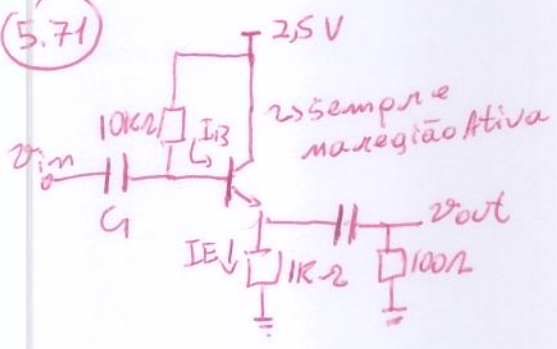 5.71
2,5 V
10KΩ
IB
↳ Sempre
na região Ativa
vin
C1
vout
IE↓
1KΩ
100Ω